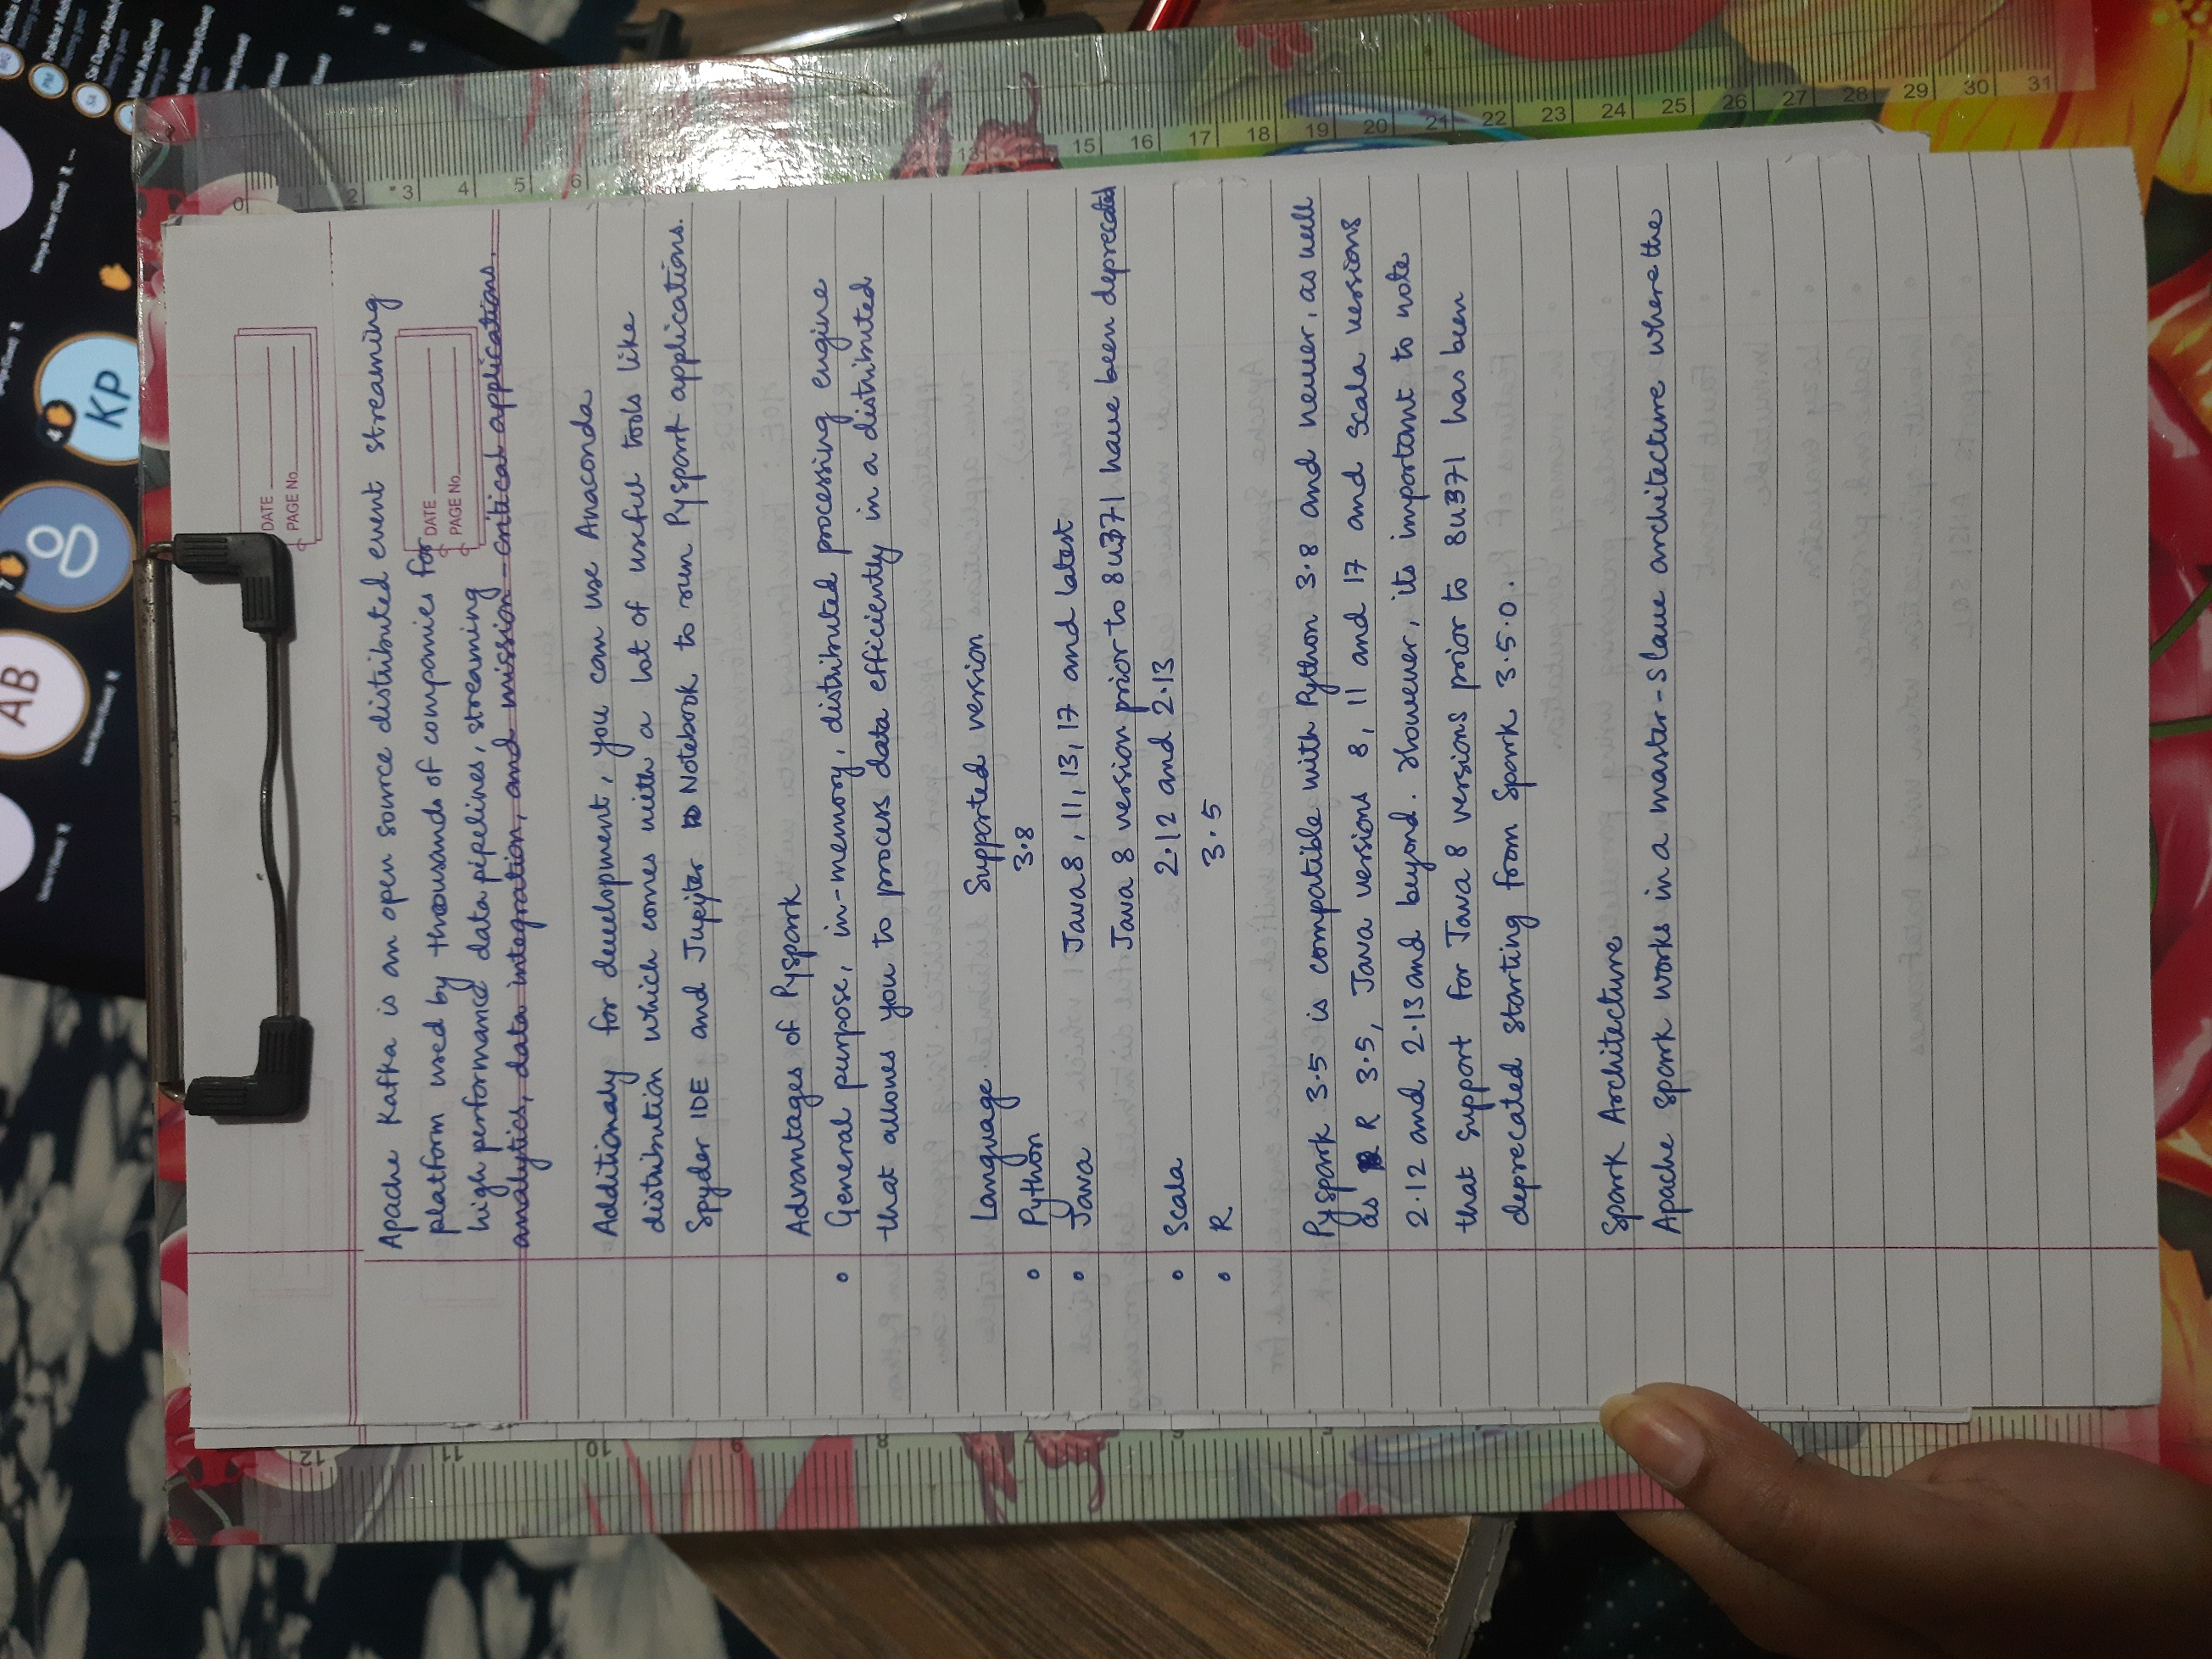 DATE
PAGE No.
DATE
PAGE No.
Apache Kafka is an open source distributed event streaming
platform used by thousands of companies for
high performance data pipelines, streaming
analytics, data integration, and mission-critical applications.
Additionaly for development, you can use Anaconda
distribution which comes with a lot of useful tools like
Spyder IDE and Jupyter Notebook to run PySpark applications.
Advantages of PySpark
• General purpose, in-memory, distributed processing engine
that allows you to process data efficiently in a distributed
Language Supported version
• Python 3.8
• Java Java 8, 11, 13, 17 and latest
Java 8 version prior to 8u371 have been deprecated
• Scala 2.12 and 2.13
• R 3.5
PySpark 3.5 is compatible with Python 3.8 and newer, as well
as R 3.5, Java versions 8, 11 and 17 and Scala versions
2.12 and 2.13 and beyond. However, its important to note
that support for Java 8 versions prior to 8u371 has been
deprecated starting from Spark 3.5.0.
Spark Architecture
Apache Spark works in a master-slave architecture where the
KP
AB
0 1 2 3 4 5 6 13 14 15 16 17 18 19 20 21 22 23 24 25 26 27 28 29 30 31
12 11 10 9 8 7